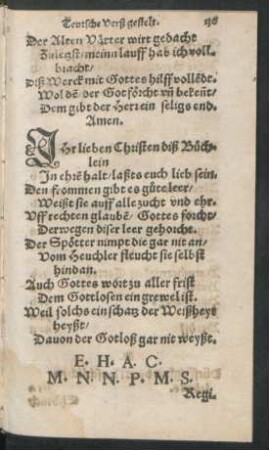 Teutsche Verß gestelt.
Der Alten Vätter wirt gedacht
Zuletst/ meinn lauff hab ich voll-
bracht/
Diß Werck mit Gottes hilff vollēdt.
Wol dē der Got förcht vñ bekeñt/
Dem gibt der Herr ein seligs end.
Amen.
IHr lieben Christen diß Büch-
lein
In ehrē halt/ laßts euch lieb sein.
Den frommen gibt es gůte leer/
Weißt sie auff alle zucht vnd ehr.
Vff rechten glaubē/ Gottes forcht/
Derwegen diser leer gehorcht.
Der Spötter nimpt die gar nit an/
Vom Heuchler fleucht sie selbst
hindan.
Auch Gottes wort zu aller frist
Dem Gottlosen ein grewel ist.
Weil solchs ein schatz der Weißheyt
heyßt/
Dauon der Gotloß gar nit weyßt.
E. H. A. C.
M. N. N. P. M. S.
Regi.